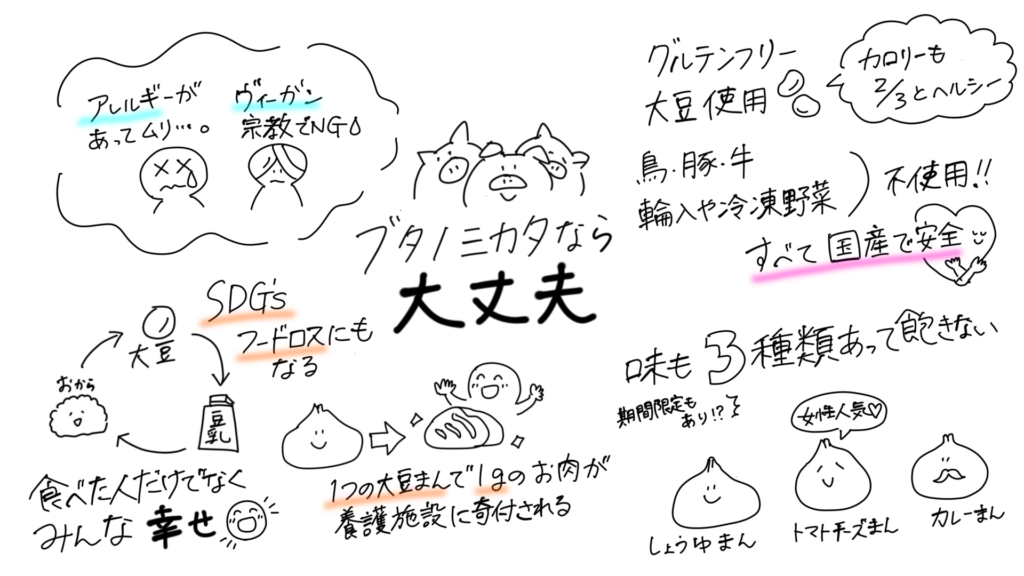 アレルギーが
あってムリ…。
ヴィーガン
宗教でNG
ブタノミカタなら
大丈夫
グルテンフリー
大豆使用
カロリーも
2/3とヘルシー
鳥・豚・牛
輸入や冷凍野菜
不使用!!
すべて国産で安全
SDG's
フードロスにも
なる
大豆
おから
豆乳
食べた人だけでなく
みんな幸せ
1つの大豆まんで1gのお肉が
養護施設に寄付される
味も3種類あって飽きない
期間限定も
あり!?
女性人気♡
しょうゆまん
トマトチーズまん
カレーまん